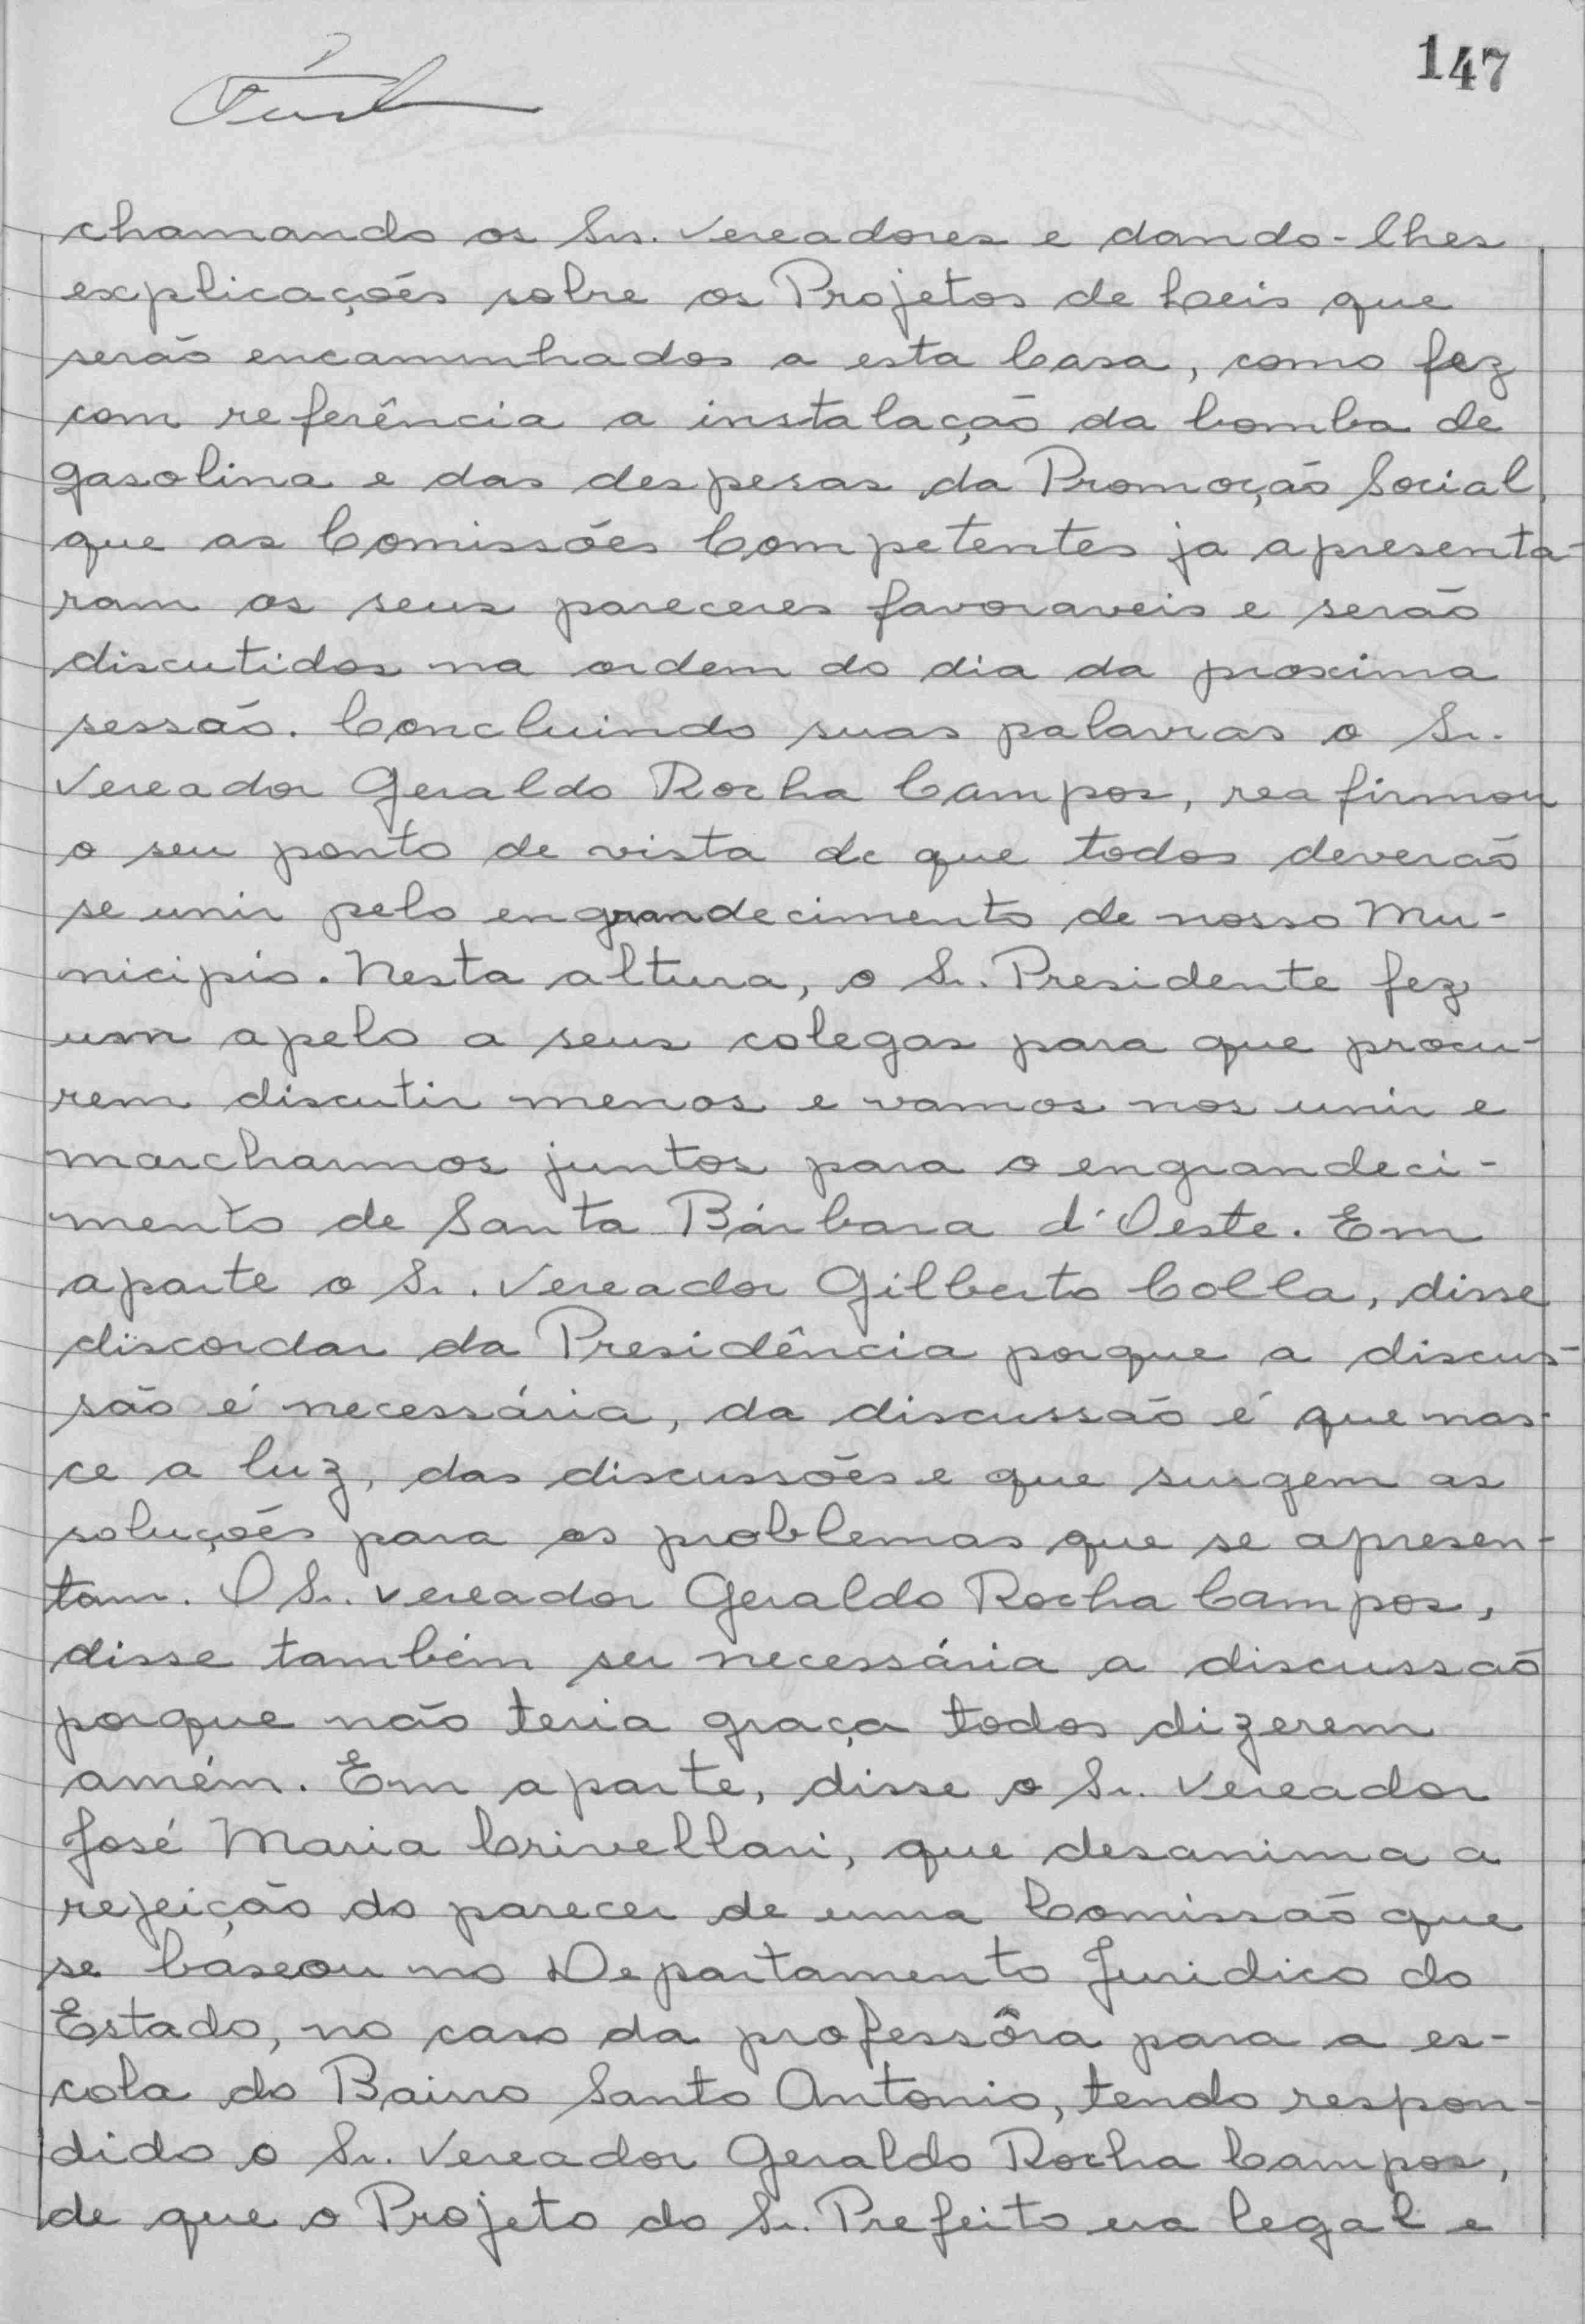 147
chamando os Srs. Vereadores e dando-lhes
explicações sobre os Projetos de Leis que
serão encaminhados a esta Casa, como fez
com referência a instalação da bomba de
gasolina e das despesas da Promoção Social,
que as Comissões Competentes ja apresenta-
ram os seus pareceres favoraveis e serão
discutidos na ordem do dia da proxima
sessão. Concluindo suas palavras o Sr.
Vereador Geraldo Rocha Campos, reafirmou
o seu ponto de vista de que todos deverão
se unir pelo engrandecimento de nosso Mu-
nicipio. Nesta altura, o Sr. Presidente fez
um apelo a seus colegas para que procu-
rem discutir menos e vamos nos unir e
marcharmos juntos para o engrandeci-
mento de Santa Bárbara d'Oeste. Em
aparte o Sr. Vereador Gilberto Colla, disse
discordar da Presidência porque a discus-
são é necessária, da discussão é que nas-
ce a luz, das discussões e que surgem as
soluções para os problemas que se apresen-
tam. O Sr. vereador Geraldo Rocha Campos,
disse também ser necessária a discussão
porque não teria graça todos dizerem
amém. Em aparte, disse o Sr. Vereador
José Maria Crivellari, que desanima a
rejeição do parecer de uma Comissão que
se baseou no Departamento Juridico do
Estado, no caso da professôra para a es-
cola do Bairro Santo Antonio, tendo respon-
dido o Sr. Vereador Geraldo Rocha Campos,
de que o Projeto do Sr. Prefeito era legal e